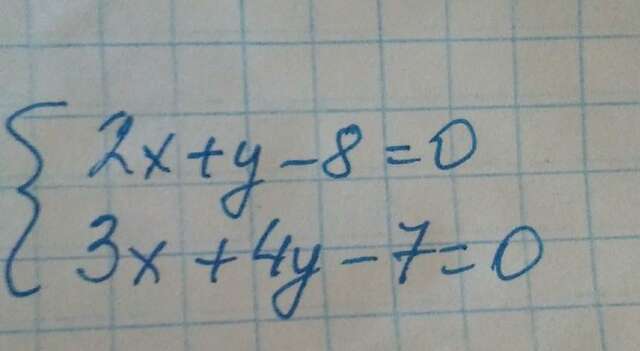 2x+y-8=0
3x+4y-7=0